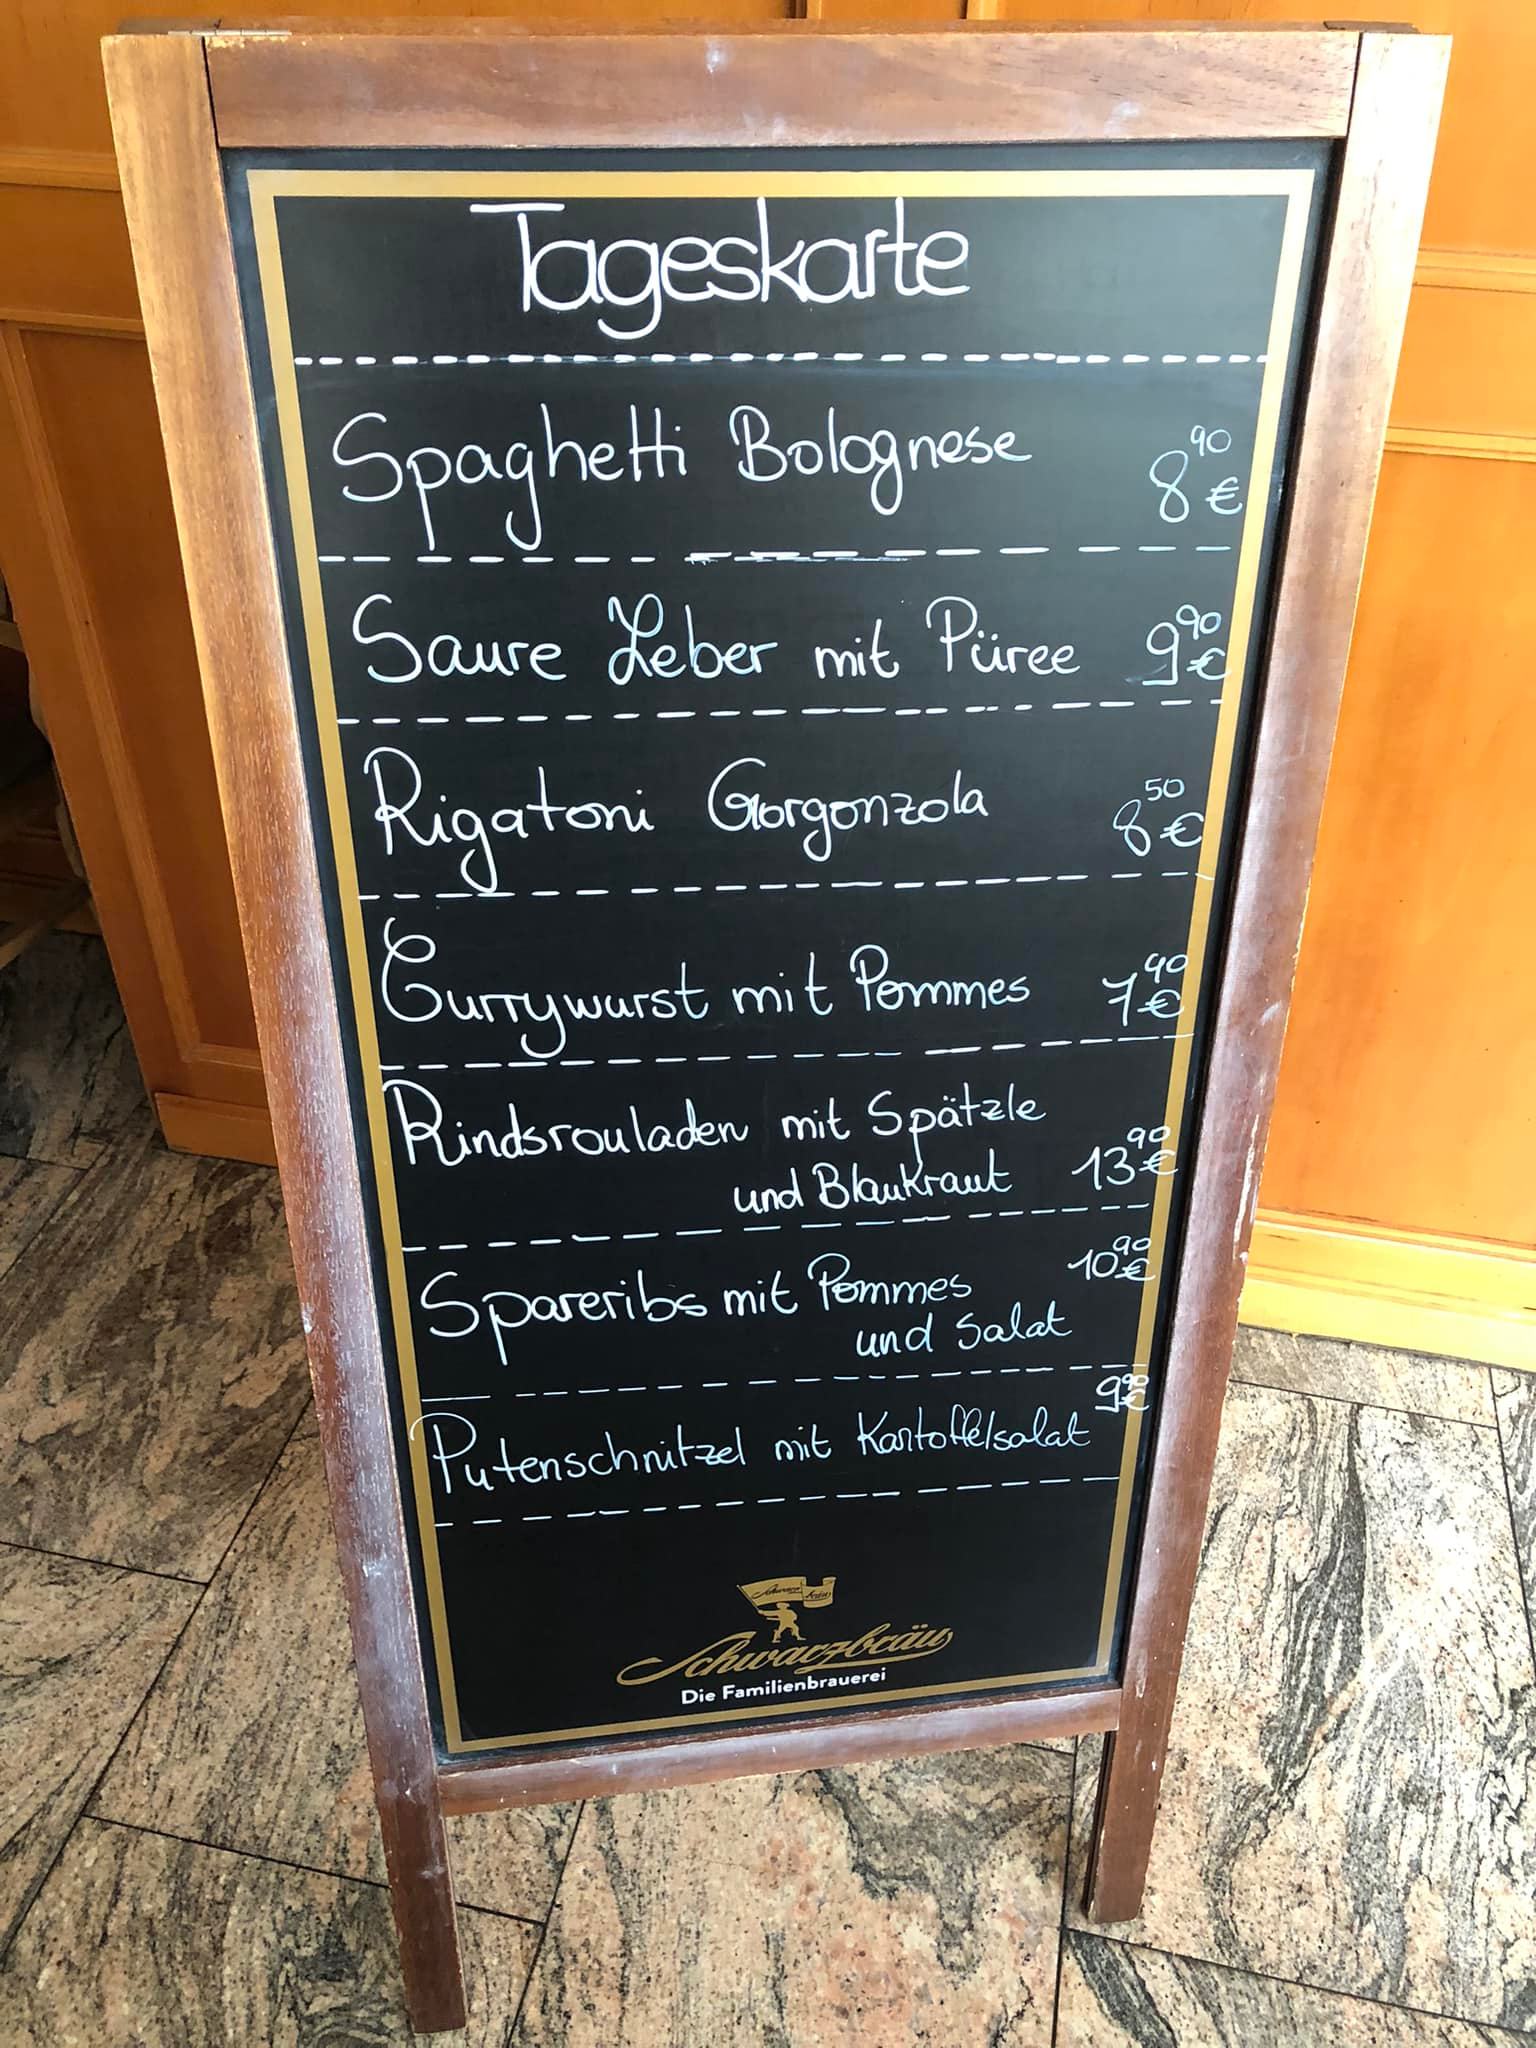 Tageskarte
Spaghetti Bolognese 8 90 €
Saure Leber mit Püree 9 90 €
Rigatoni Gorgonzola 8 50 €
Currywurst mit Pommes 7 90 €
Rindsrouladen mit Spätzle
und Blaukraut 13 90 €
Spareribs mit Pommes 10 90 €
und Salat
9 90 €
Putenschnitzel mit Kartoffelsalat
Schwarzbräu
Schwarzbräu
Die Familienbrauerei